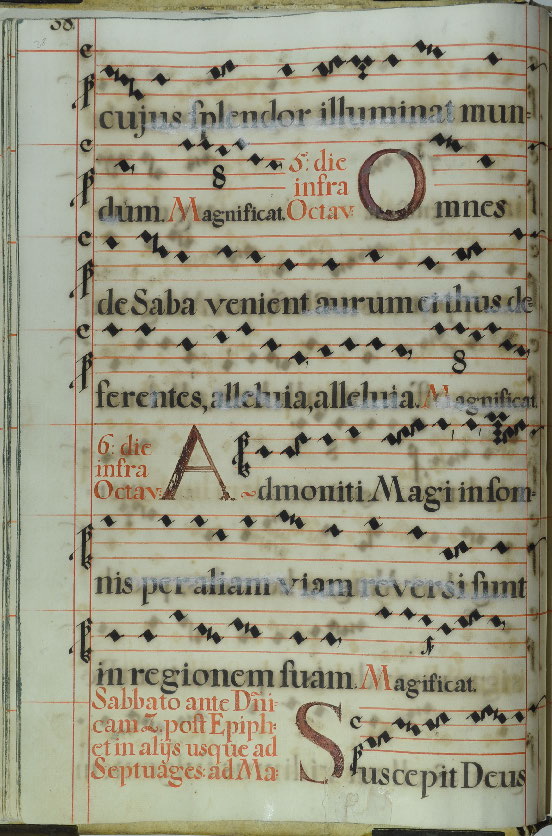 38
cujus splendor illuminat mun-
dum. Magnificat. 5: die infra Octav: Omnes
8
de Saba venient aurum et thus de-
ferentes, alleluia, alleluia. Magnificat.
8
6: die infra Octav: Admoniti Magi in som-
nis per aliam viam reversi sunt
in regionem suam. Magificat.
Sabbato ante Dñi-
cam 2. post Epiph:
et in alijs usque ad
Septuages: ad Ma:
Suscepit Deus